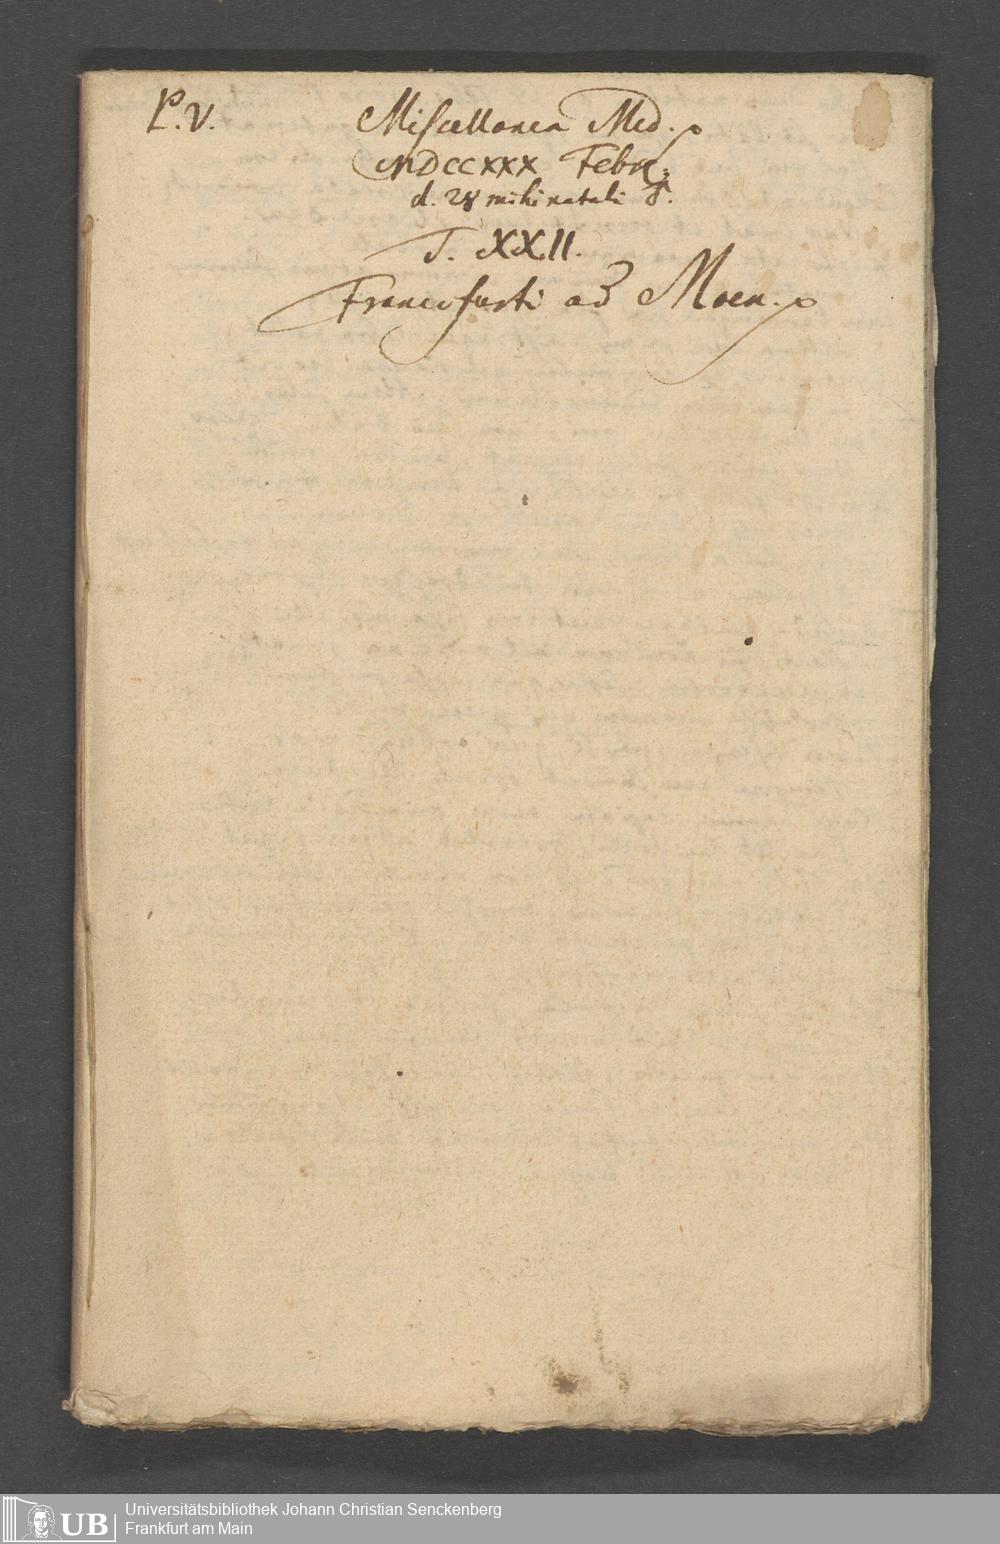 P.V.
Miscellanea Med.
MDCCXXX Febr.
d. 28 mihi natali
T. XXII.
Francofurti ad Moen.
UB
Universitätsbibliothek Johann Christian Senckenberg
Frankfurt am Main